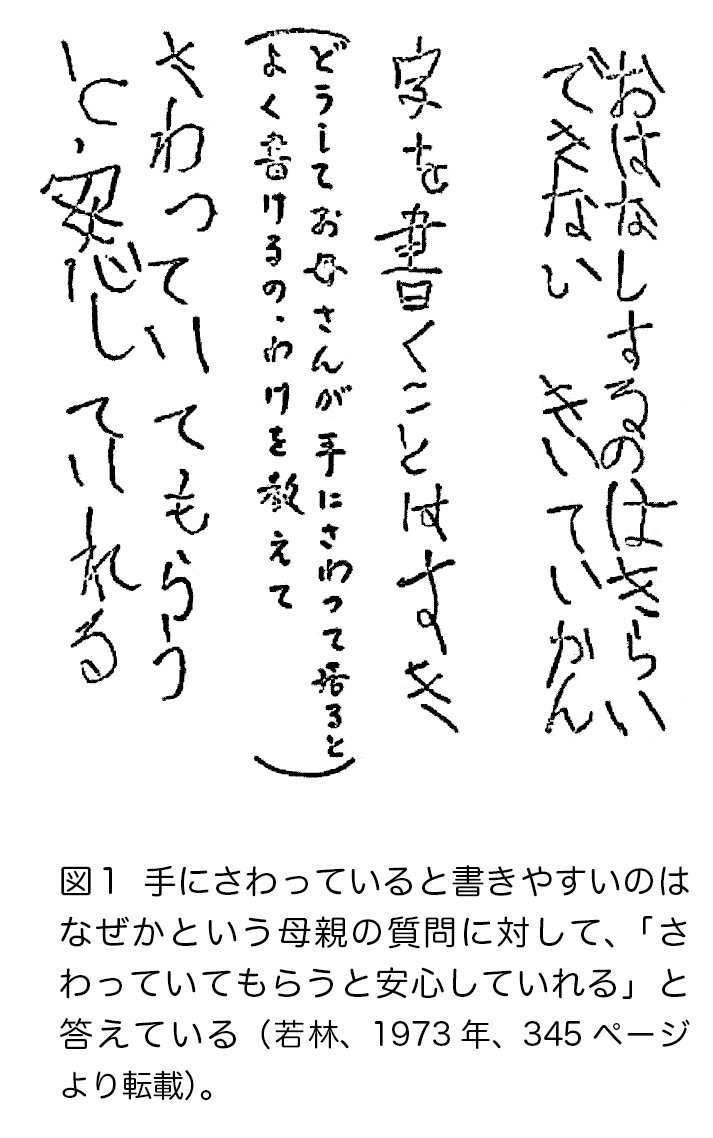 おはなしするのはきらい
できない きいていかん
字を書くことはすき
（どうしてお母さんが手にさわって居ると
よく書けるの、わけを教えて）
さわっていてもらう
と、安心していれる
図1 手にさわっていると書きやすいのは
なぜかという母親の質問に対して、「さ
わっていてもらうと安心していれる」と
答えている（若林、1973年、345ページ
より転載）。